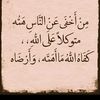 مِنْ أَخْفَى عَنِ النَّاسِ هَمَّه
متوكلاً عَلَى الله،،
كفَاهُ اللهُ مَا أهَمَّه، وَأَرْضَاه